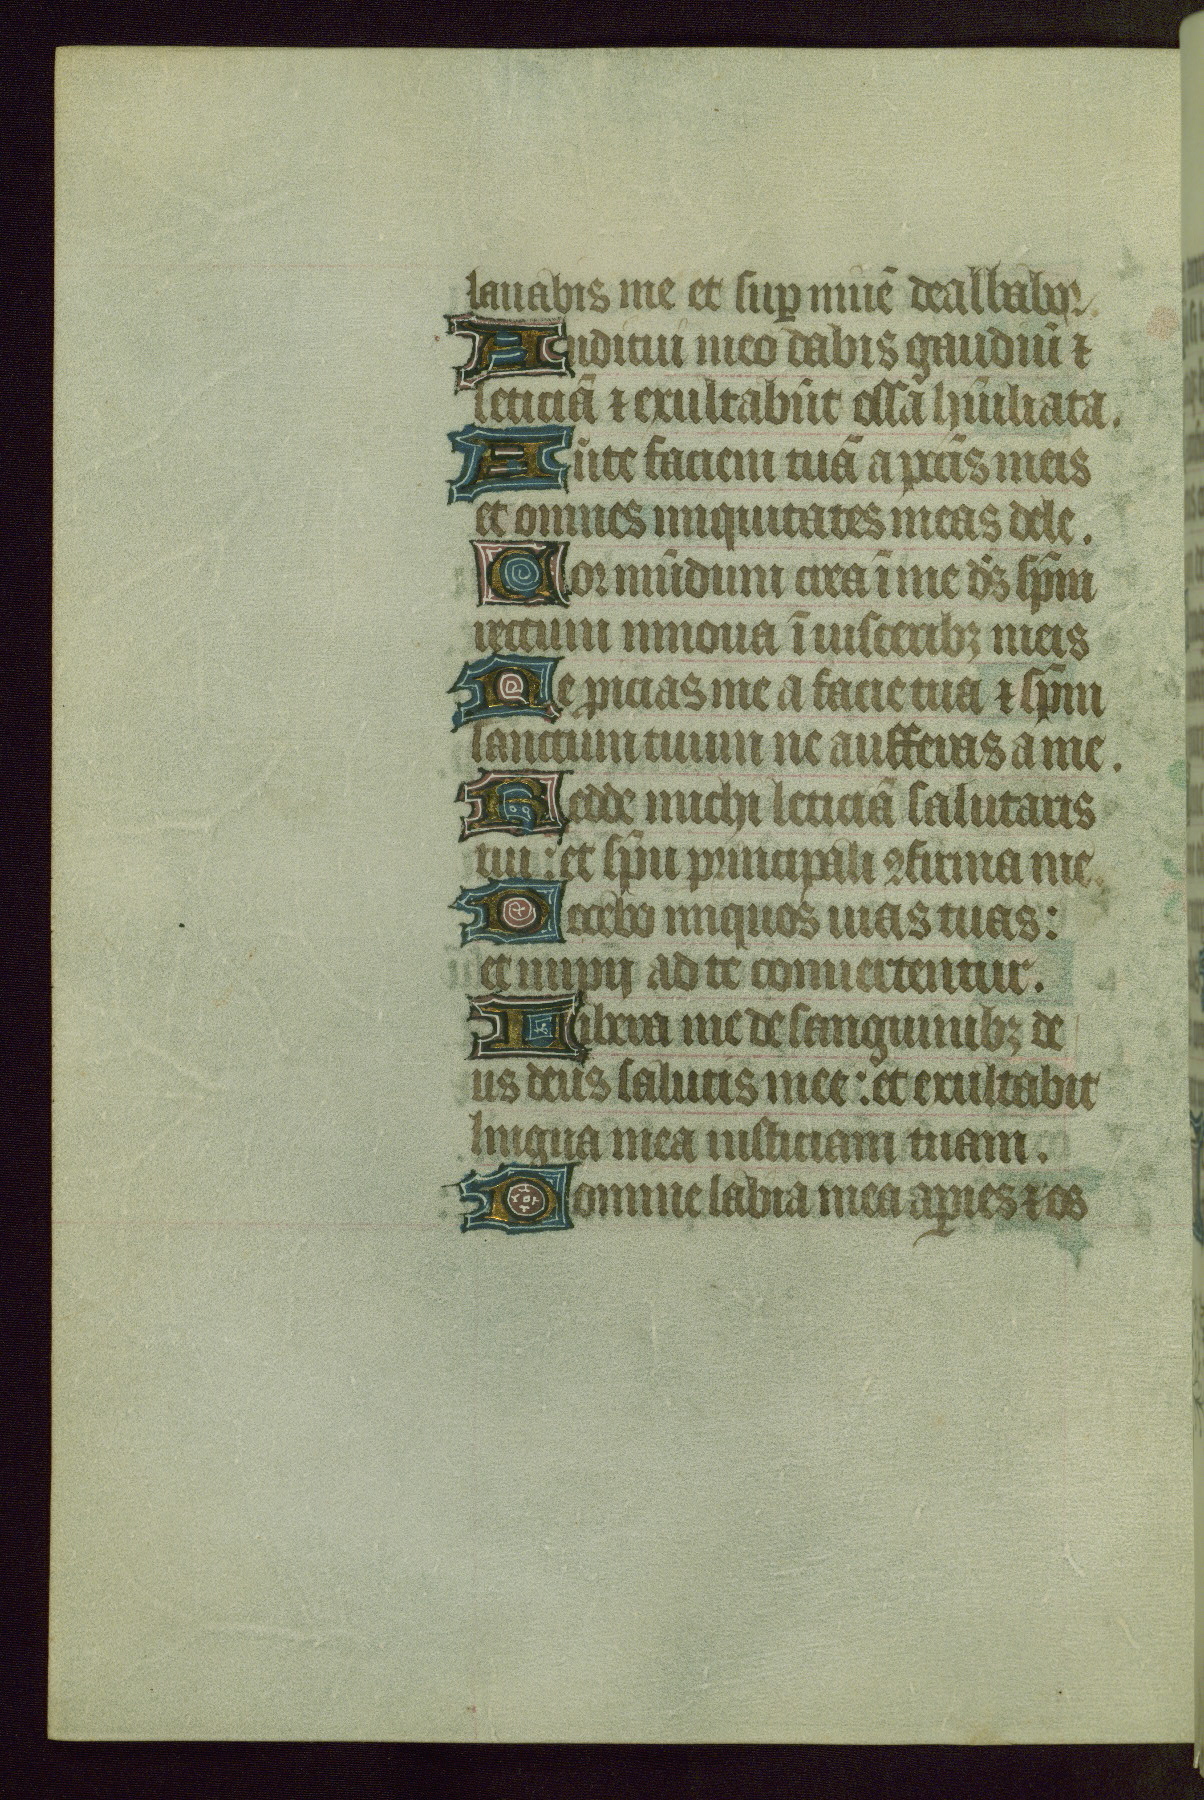 lauabis me et sup niuē dealbabor.
Auditui meo dabis gaudiū ⁊
leticiā ⁊ exultabūt ossā hūiliata.
Auīte faciem tuā a pctīs meis
et omnes iniquitates meas dele.
Cor mūdum crea ī me dꝰs spm̄
rectum innoua ī uisceribꝫ meis
Ne ꝓicias me a facie tua ⁊ spm̄
sanctum tuum ne aufferas a me.
Redde michi leticiā salutaris
tui: et spū principali ꝯfirma me.
Docebo iniquos uias tuas:
et impij ad te conuertentur.
Libera me de sanguinibꝫ de
us deus salutis mee: et exultabit
lingua mea iusticiam tuam.
Domine labia mea aꝑies ⁊ os